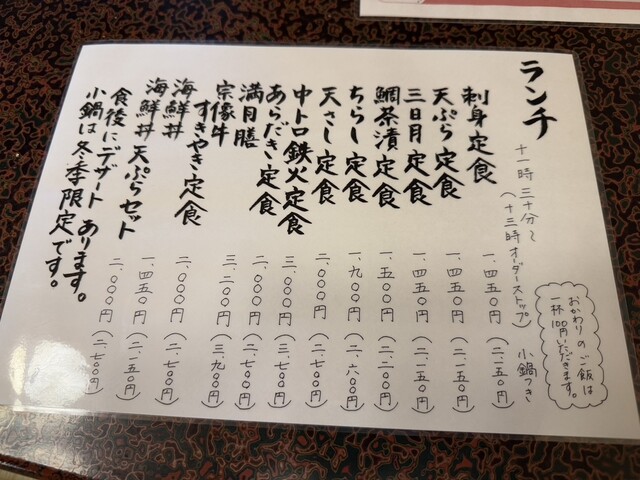 ランチ 十一時三十分〜(十三時オーダーストップ) 小鍋つき
おかわりのご飯は
一杯100円いただきます。
刺身定食 一、四五〇円 (二、一五〇円)
天ぷら定食 一、四五〇円 (二、一五〇円)
三日月定食 一、四五〇円 (二、一五〇円)
鯛茶漬定食 一、五〇〇円 (二、二〇〇円)
ちらし定食 一、九〇〇円 (二、六〇〇円)
天さし定食 二、〇〇〇円
中トロ鉄火定食 三、〇〇〇円
あらだき定食 二、〇〇〇円
満月膳
宗像牛
すきやき定食
海鮮丼 一、四五〇円 (二、一五〇円)
海鮮丼 天ぷらセット 二、〇〇〇円 (二、七〇〇円)
食後にデザートあります。
小鍋は冬季限定です。